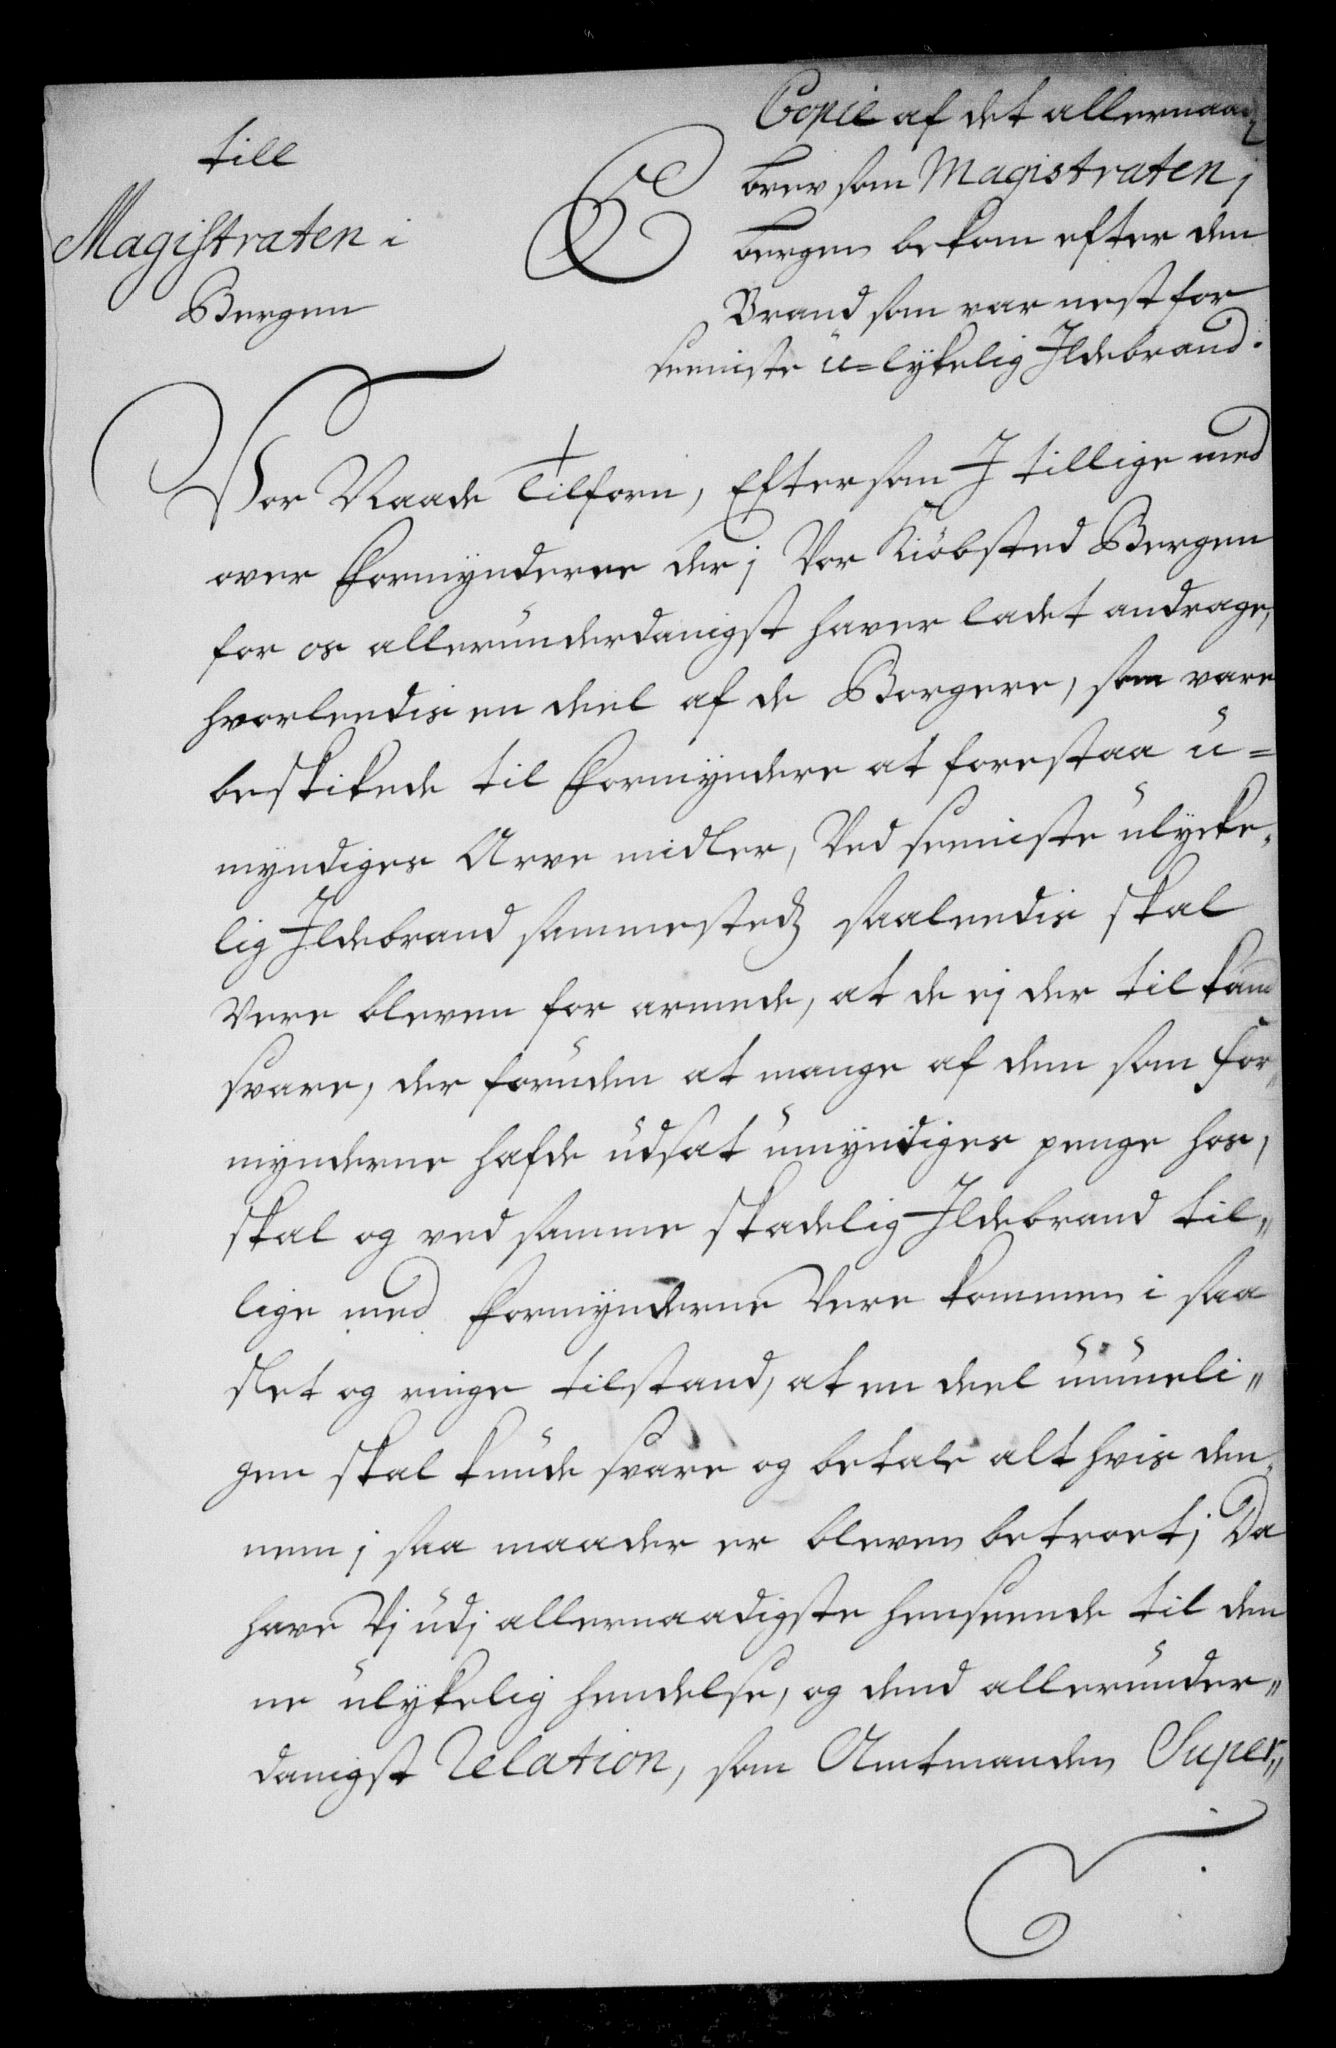 till
Magistraten i
Bergen
Copie af det allernaadz
brev som Magistraten j
bergen bekom efter den
Brand som var nest for
seeniste u=lykelig Ildebrand.
Vor Naade Tilforn, Eftersom I tillige med
over Formynderne der j Vor Kiöbsted Bergen
for os allerunderdanigst haver ladet andrage,
hvorleedis en deel af de Borgere, som vare
beskikede til Formyndere at forestaa u=
myndiges Arve midler, Ved seeniste ulycke,
lig Ildebrand sammestedz saaleedis skal
Vere bleven for armede, at de ej der til kand
svare, der foruden at mange af dem som for„
mynderne hafde udsat umyndiges penge hos,
skal og ved samme skadelig Ildebrand til„
lige med Formynderne Vere kommen i saa
slet og ringe tilstand, at en deel umueli„
gen skal kunde svare og betale alt hvis den„
nem j saa maader er bleven betroet; Da
have Vj udj allernaadigste henseende til den
ne ulykelig hendelse, og dend allerunder„
danigst Relation, som Amtmanden Super„